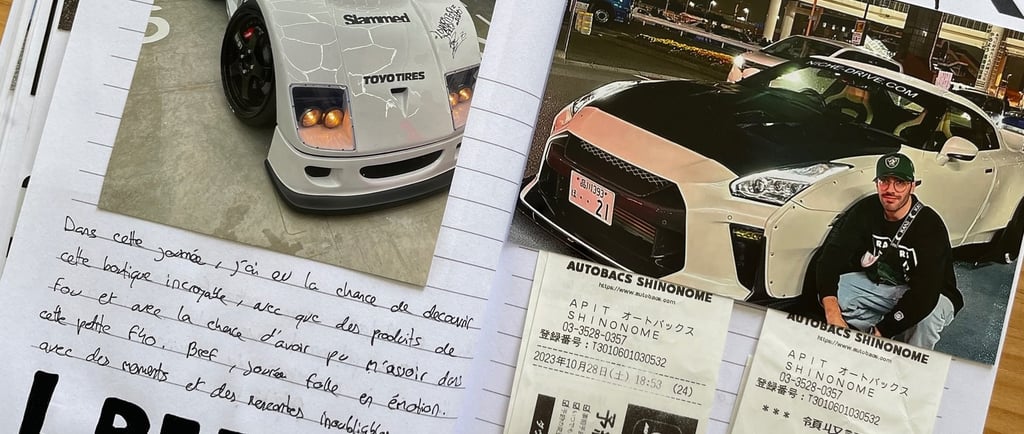 Slammed
TOYO TIRES
NICHE-DRIVE.COM
品川 393
21
Dans cette journée, j'ai eu la chance de decouvrir
cette boutique incroyable, avec que des produits de
fou et avec la chance d'avoir pu m'assoir dans
cette petite F40. Bref, journée folle en émotion.
avec des moments et des rencontres inoubliables
AUTOBACS SHINONOME
https://www.autobacs.com
APIT オートバックス
SHINONOME
03-3528-0357
登録番号：T3010601030532
2023年10月28日(土) 18:53 (24)
AUTOBACS SHINONOME
https://www.autobacs.com
APIT オートバックス
SHINONOME
03-3528-0357
登録番号：T3010601030532
***